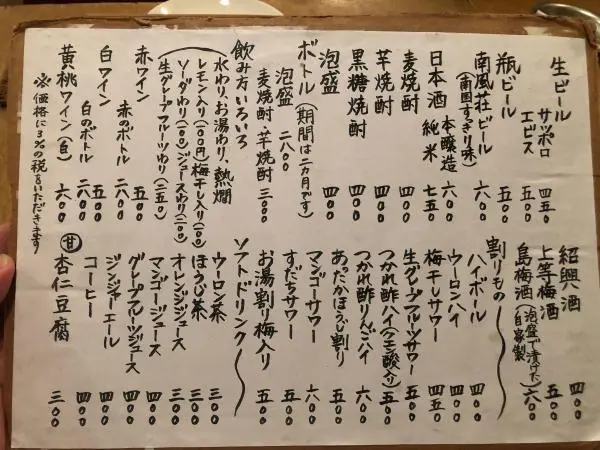 生ビール
サッポロ 四五〇
エビス 五〇〇
瓶ビール 五〇〇
南風荘ビール 六〇〇
(南国すぎり味)
日本酒 本醸造 六〇〇
純米 七五〇
麦焼酎 四〇〇
芋焼酎 四〇〇
黒糖焼酎 四〇〇
泡盛 四〇〇
ボトル(期間は二カ月です)
泡盛 二八〇〇
麦焼酎・芋焼酎 三〇〇〇
飲み方いろいろ
水わり、お湯わり、熱燗
レモン入り(一〇〇円)梅干し入り(一〇〇)
ソーダわり(一〇〇)ジュースわり(一〇〇)
生グレープフルーツわり(二五〇)
赤ワイン 五〇〇
赤のボトル 二六〇〇
白ワイン 五〇〇
白のボトル 二六〇〇
黄桃ワイン(白) 六〇〇
※価格に3%の税をいただきます
紹興酒 四〇〇
上等梅酒 五〇〇
島梅酒(泡盛で漬けた自家製) 六〇〇
割りもの
ハイボール 四〇〇
ウーロンハイ 四〇〇
梅干しサワー 四五〇
生グレープフルーツサワー 五〇〇
つかれ酢ハイ(クエン酸入り) 五〇〇
つかれ酢りんごハイ 六〇〇
あったかほうじ割り 五〇〇
マンゴーサワー 六〇〇
すだちサワー 五〇〇
お湯割り梅入り 五〇〇
ソフトドリンク
ウーロン茶 三〇〇
ほうじ茶 三〇〇
オレンジジュース 三〇〇
マンゴージュース 四〇〇
グレープフルーツジュース 四〇〇
ジンジャーエール 四〇〇
コーヒー 四〇〇
甘 杏仁豆腐 三〇〇